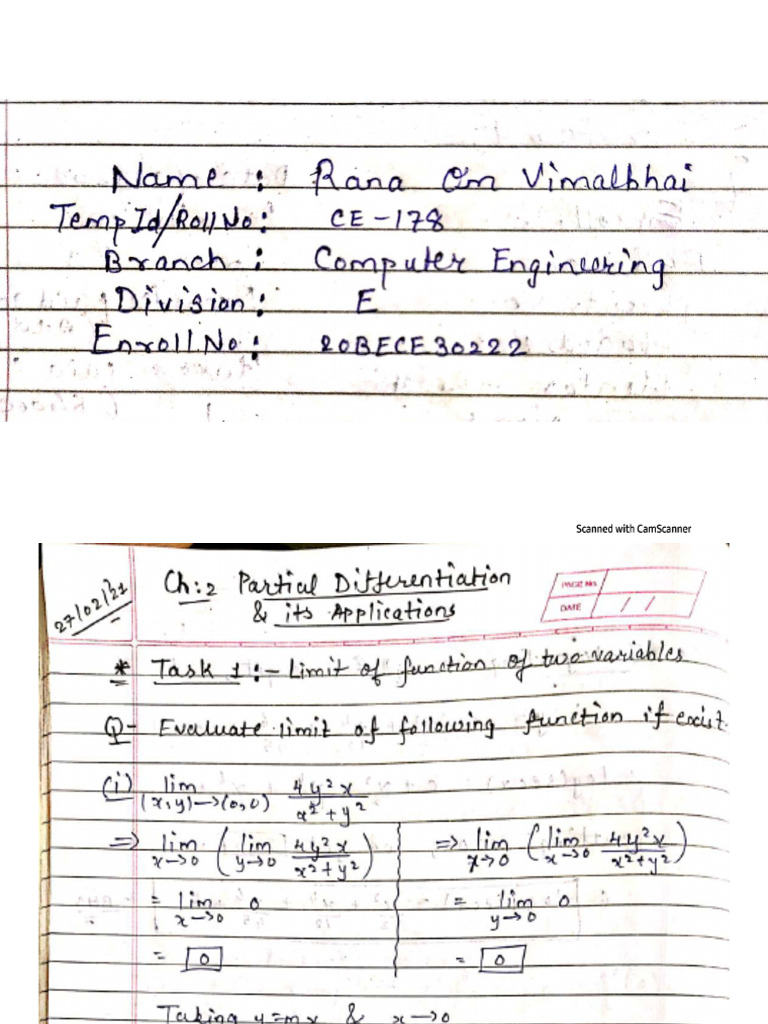 Name : Rana Om Vimalbhai
Temp Id/Roll No : CE-178
Branch : Computer Engineering
Division : E
Enroll No : 20BECE30222
Scanned with CamScanner
27/02/21
Ch:2 Partial Differentiation
& its Applications
PAGE No.
DATE / /
* Task 1 :- Limit of function of two variables
Q- Evaluate limit of following function if exist.
(i) lim (x,y)→(0,0) 4y²x / x²+y²
⇒ lim x→0 ( lim y→0 4y²x / x²+y² ) ⇒ lim y→0 ( lim x→0 4y²x / x²+y² )
= lim x→0 0 = lim y→0 0
= 0 = 0
Taking y=mx & x→0